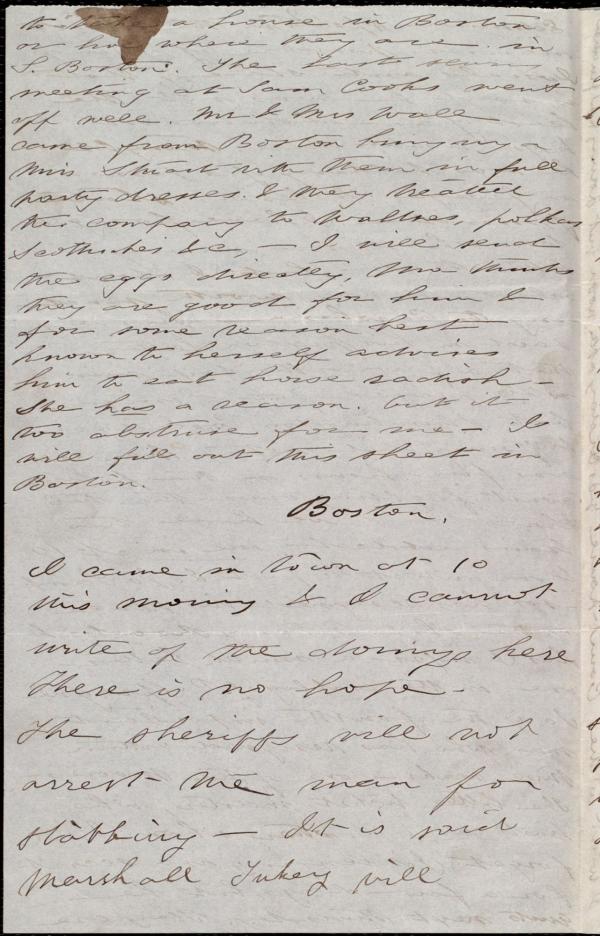 to take a house in Boston
or hire where they are in
S. Boston. The last sewing
meeting at Sam Cooks went
off well. Mr & Mrs Wall
came from Boston bringing a
Miss Stuart with them in full
party dresses. & they treated
the company to Waltzes, polkas
Scottisches &c, — I will send
the eggs directly,  thinks
they are good for him &
for some reason best
known to herself advises
him to eat horse radish —
She has a reason. but it
too abstruse for me — I
will fill out this sheet in
Boston.
Boston,
I came in town at 10
this morning & I cannot
write of the doings here
There is no hope —
The sheriffs will not
arrest the man for
stabbing — It is said
Marshall Tukey will